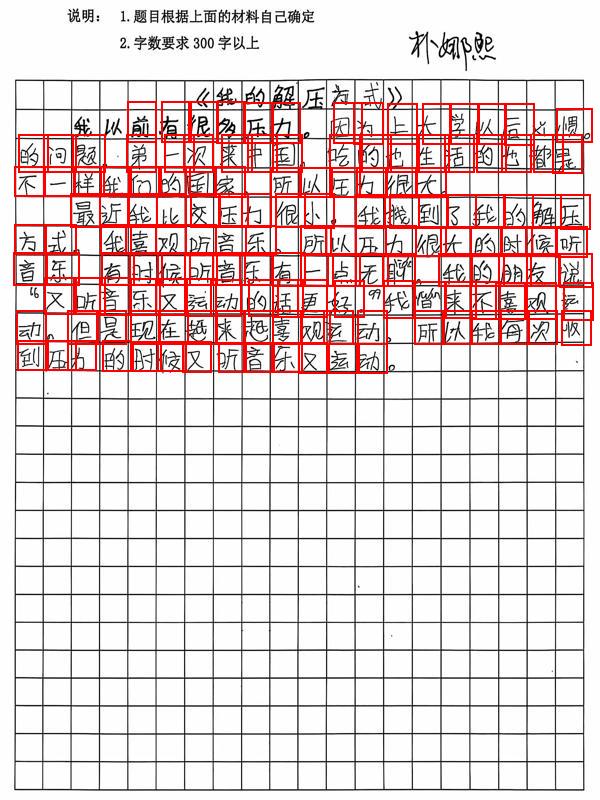 说明： 1.题目根据上面的材料自己确定
2.字数要求300字以上
朴娜熙
《我的解压方式》
我以前有很多压力。因为上大学以后习惯
的问题。弟一次来中国。吃的也生活的也都是
不一样我们的国家。所以压力很大。
最近我比交压力很小。我找到了我的解压
方式。我喜观听音乐。所以压力很大的时候听
音乐。有时候听音乐有一点无聊。我的朋友说
“又听音乐又运动的话更好。”我来不喜观运
动。但是现在越来越喜观运动。所以我每次收
到压力的时候又听音乐又运动。